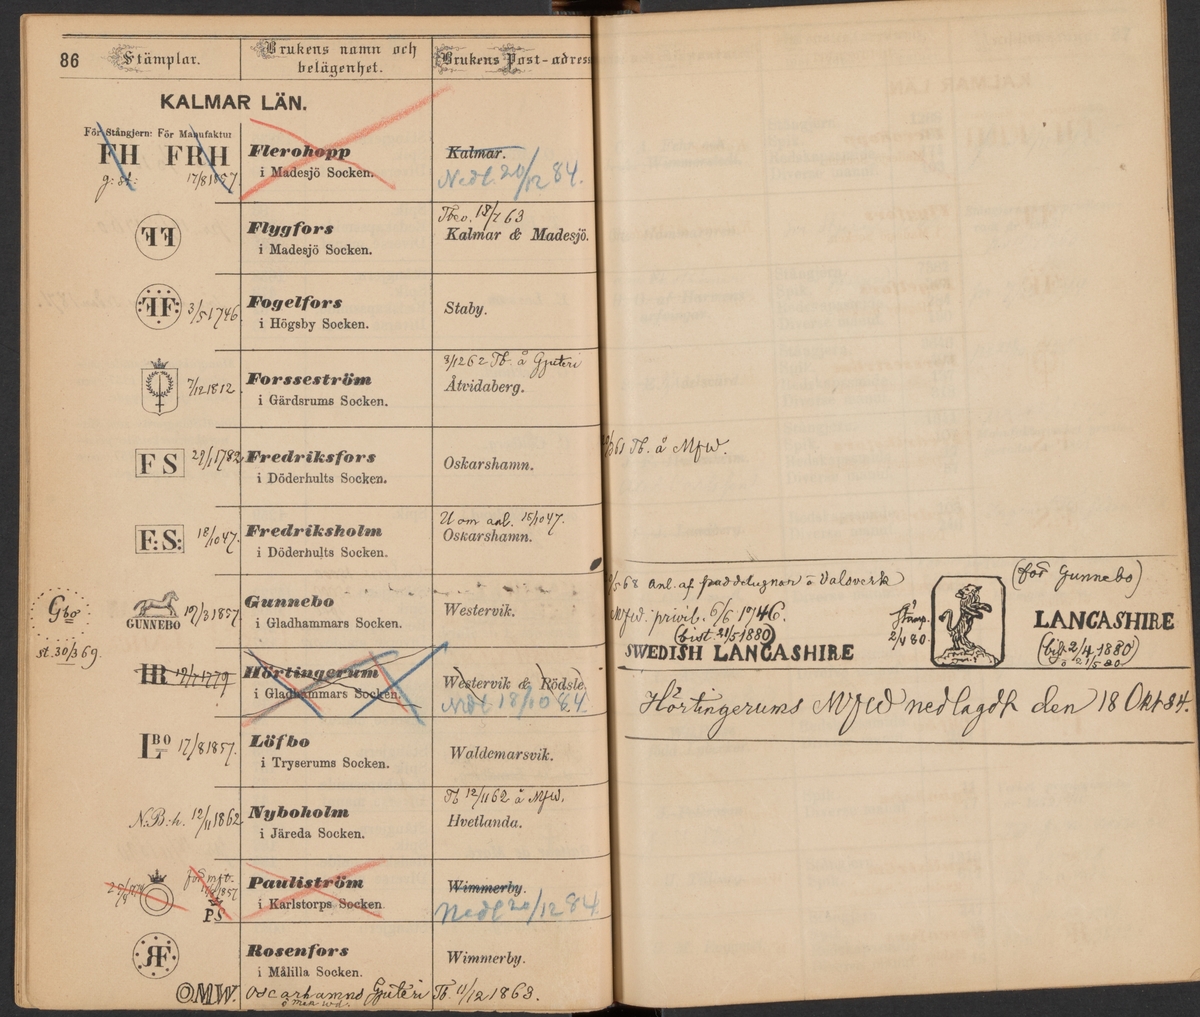 86 Stämplar. Brukens namn och belägenhet. Brukens Post-adress
KALMAR LÄN.
För Stångjern: För Manufaktur
FH FRH Flerohopp Kalmar.
g: st: 17/8 1857. i Madesjö Socken. Nedl. 20/12 84.
FF Flygfors Tbev. 18/7 63
i Madesjö Socken. Kalmar & Madesjö.
FF 3/5 1746 Fogelfors Staby.
i Högsby Socken.
7/12 1812 Forsseström 3/12 62 Tb. å Gjuteri
i Gärdsrums Socken. Åtvidaberg.
F S 29/1 1782 Fredriksfors Oskarshamn.
i Döderhults Socken.
F:S: 18/10 47. Fredriksholm U om anl. 15/10 47.
i Döderhults Socken. Oskarshamn.
Gbo
st. 30/3 69.
GUNNEBO 17/3 1857 Gunnebo Westervik.
i Gladhammars Socken.
HR 12/7 1779 Hörtingerum Westervik & Rödsle
i Gladhammars Socken. Nedl 18/10 84.
LBO 17/8 1857. Löfbo Waldemarsvik.
i Tryserums Socken.
N.B:h. 12/11 1862 Nyboholm Tb 12/11 62 å Mfw.
i Järeda Socken. Hvetlanda.
för mft.
PS Pauliström Wimmerby.
i Karlstorps Socken Nedl 20/12 84.
RF Rosenfors Wimmerby.
i Målilla Socken.
OMW. Oscarhamns Gjuteri Tb. 11/12 1863.
å mek wd.
61 Tb. å Mfw.
68 anl. af puddelugnar o Valsverk
Mfw. privil. 6/6 1746.
(bist 21/5 1880)
SWEDISH LANCASHIRE
å stämp. 2/4 80.
(för Gunnebo)
LANCASHIRE
(bif. 2/4 1880)
o 21/5 80
Hörtingerums Mfw nedlagdt den 18 Okt 84.